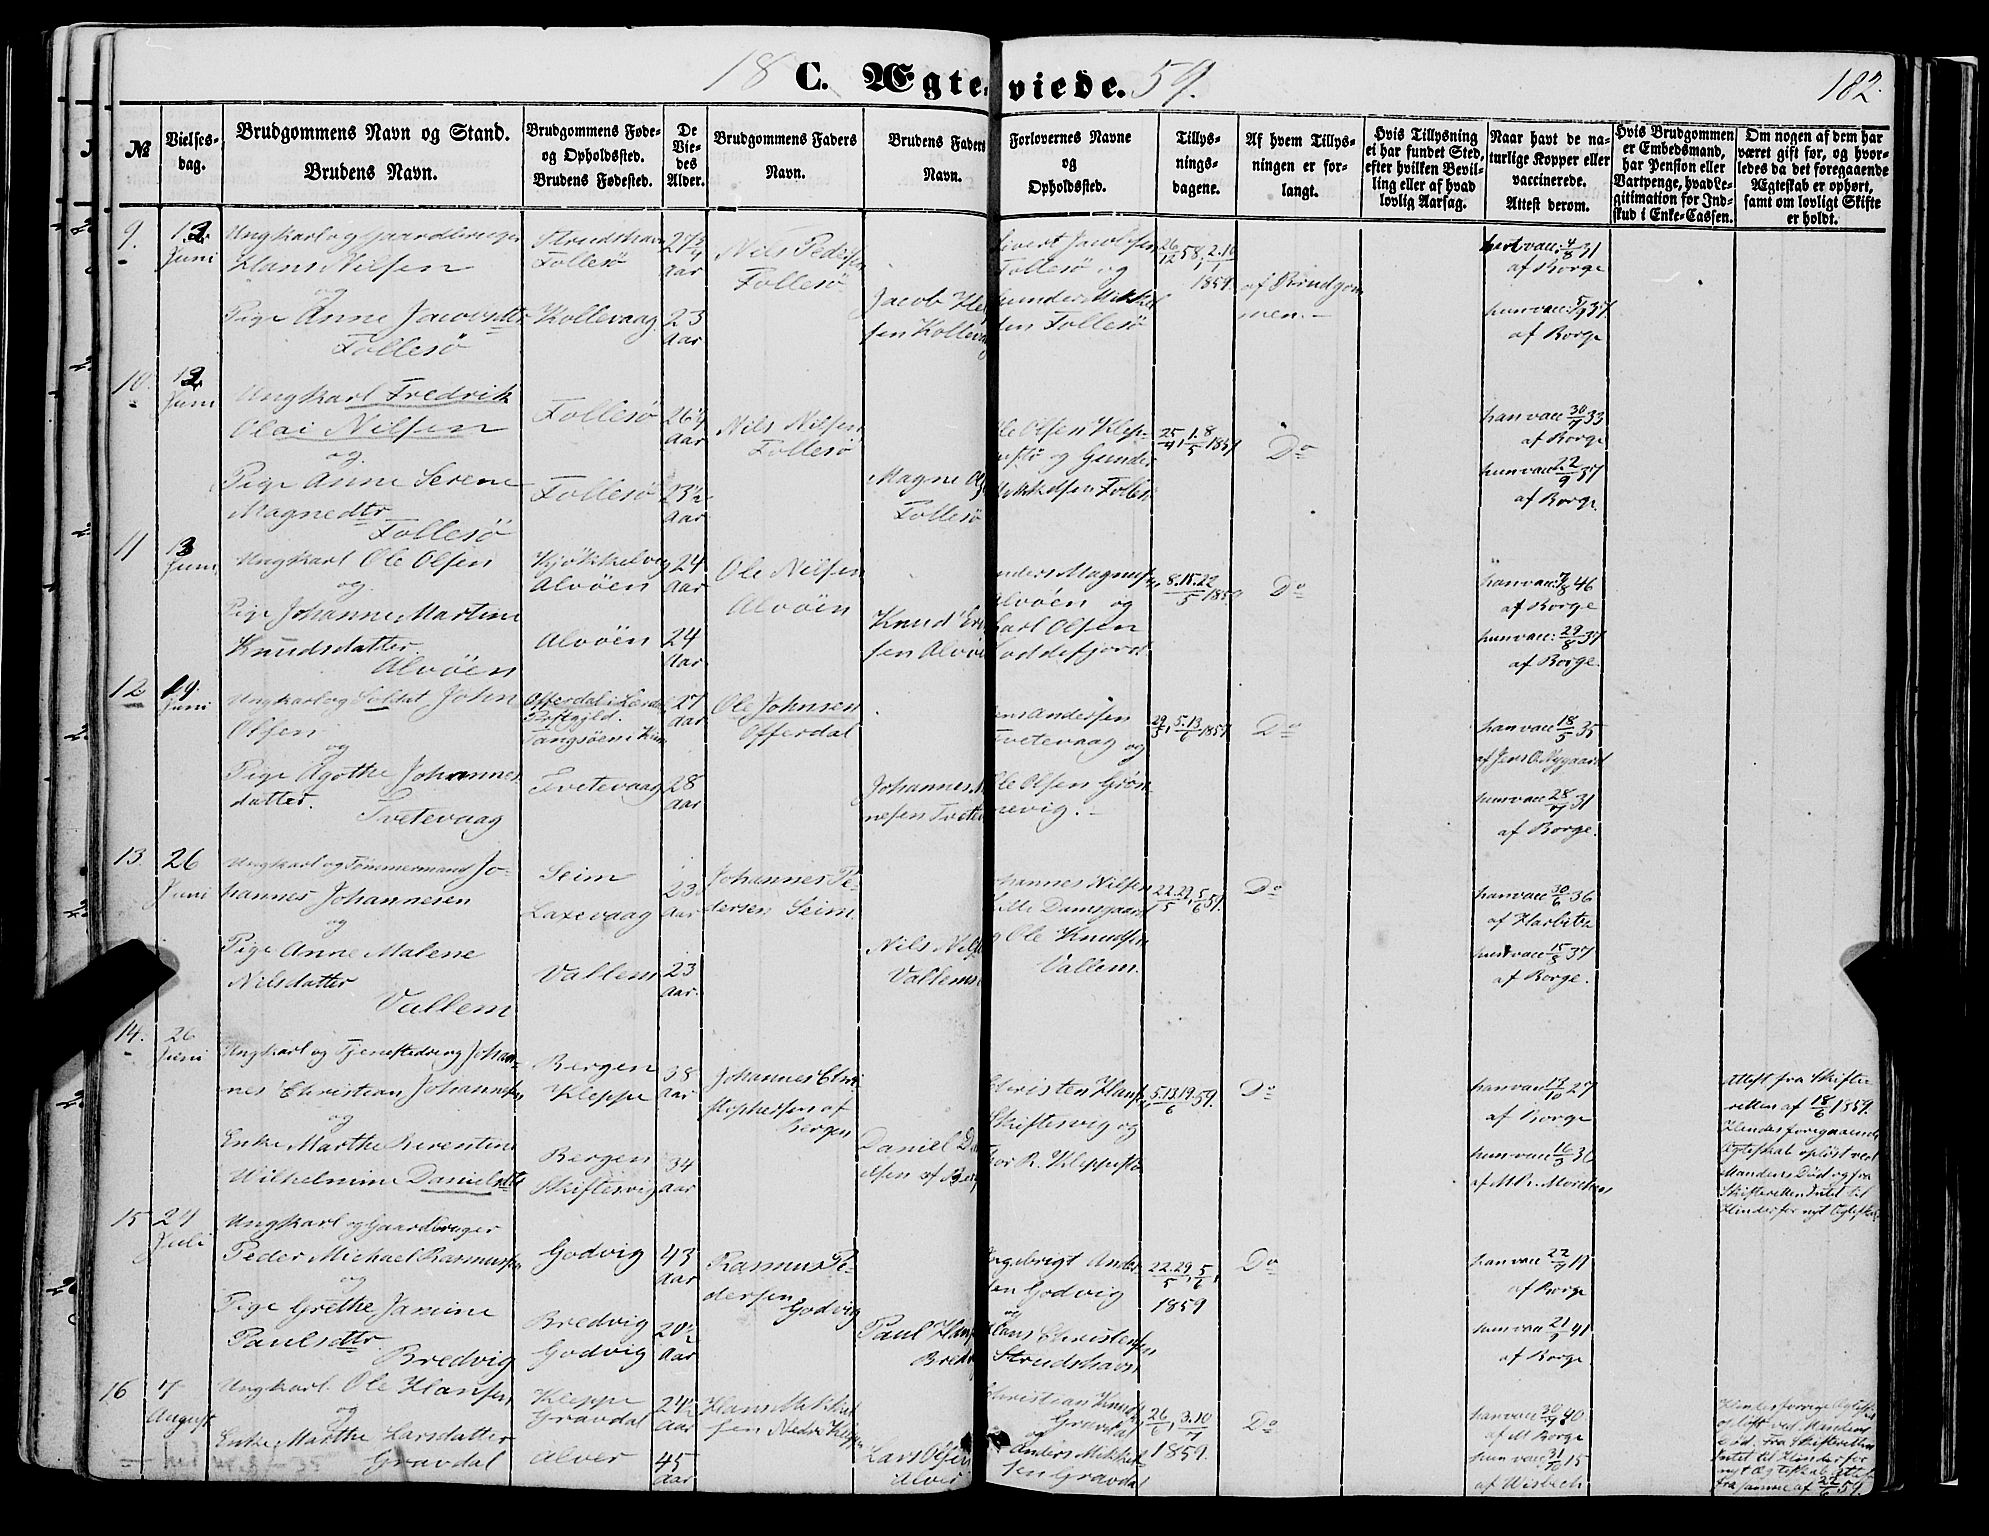 18 C. Ægteviede. 59.
182.
№
Vielsesdag.
Brudgommens Navn og Stand.
Brudens Navn.
Brudgommens Føde-
og Opholdssted.
Brudens Fødested.
De
Vie-
des
Alder.
Brudgommens Faders
Navn.
Brudens Faders
Navn.
Forlovernes Navne
og
Opholdssted.
Tillys-
nings-
dagene.
Af hvem Tillys-
ningen er for-
langt.
Hvis Tillysning
ei har fundet Sted,
efter hvilken Bevil-
ling eller af hvad
lovlig Aarsag.
Naar havt de na-
turlige Kopper eller
vaccinerede.
Attest derom.
Hvis Brudgommen
er Embedsmand,
har Pension eller
Vartpenge, hvad Le-
gitimation for Ind-
skud i Enke-Cassen.
Om nogen af dem har
været gift før, og hvor-
ledes da det foregaaende
Ægteskab er ophørt,
samt om lovligt Skifte
er holdt.
9. Juni
Ungkarl og Gaardbruger
Hans Nilsen
og
Pige Anne Jacobsdtr
Follesö
Strudshavn
Follesö
Kollevaag
27 3/4 Aar
23 Aar
Nils Peders
Follesö
Jacob
sen Kollevaag
Sivert Jacobsen
Follesö og
Gunder Mikkel
sen Follesö
26/12 58, 2.10/1
1859.
af Brudgom
men.
4/8 31
af Borge
hun vacc: 5/9 37
af Borge
10. 12 Juni
Ungkarl Fredrik
Olai Nilsen
og
Pige Anne Serene
Magnedtr
Follesö
Follesö
Follesö
26 1/4 Aar
23 1/2 Aar
Nils Nilsen
Follesö
Magne
Follesö
Ole Olsen Klep-
pestö og Gunder
Mikkelsen Follesö
25/4, 1.8/5 1859
Do
han vacc 30/7 33
af Borge
hun vacc: 22/9 37
af Borge
11 13 Juni
Ungkarl Ole Olsen
og
Pige Johanne Martine
Knudsdatter
Alvöen
Kjökkelvig
Alvöen
Alvöen
24 Aar
24 Aar
Ole Nilsen
Alvöen
Knud
sen Alvöen
Anders Magnus
Alvöen og
Karl Olsen
Loddefjord
8.15.22/5 1859
Do
han vacc: 7/8 46
af Borge
hun vacc: 29/8 37
af Borge.
12 19 Juni
Ungkarl og Soldat John
Olsen
og
Pige Agothe Johannes
datter.
Tvetevaag
Offerdal i Lærdal
Præstgjld.
Tvetevaag
27 Aar
28 Aar
Ole Johnsen
Offerdal
Johannes
nesen Tvete
Andersen
Tvetevaag og
Ole Olsen Grön
nevig.
29/5, 5.13/6 1859
Do
han vacc 18/5 35
af Jens Nygaard
hun vacc 28/7 31
af Borge.
13. 26 Juni
Ungkarl og Tömmermand Jo-
hannes Johannesen
og
Pige Anne Malene
Nilsdatter
Vallem
Seim
Laxevaag
Vallem
23 Aar
23 Aar.
Johannes Pe-
dersen Seim
Nils
Vallem
Johannes Nilsen
Lille Damsgaard
og Ole Knudsen
Vallem.
22.29/5, 5/6 59.
Do
han vacc 30/6 36
af
hun vacc 15/5 37
af Borge.
14. 26 Juni
Ungkarl og Tjenestedreng Johan-
nes Christian Johannesen
og
Enke Marthe Berentine
Wilhelmine Danielsdtr
Bergen
Kleppe
Bergen
Skiftesvig
38 Aar
34 Aar
Johannes Chri
stophersen af
Bergen
Daniel
elsen af Berg
Christen Hans
Skiftesvig og
Thor R. Kleppestö
5.13.19/6 59.
Do
27
af Borge
hun vacc 16/5 30
Attest fra Skifte
retten af 18/6 1859.
Hendes foregaaende
Ægteskab oplöst ved
Mandens Död og fra
Skifteretten Intet til
Hinder for nyt Ægteska
15 24 Juli
Ungkarl og Gaardbruger
Peder Michael Rasmussen
og
Pige Grethe Janine
Paulsdtr.
Bredvig
Godvig
Bredvig
Godvig
43 Aar
20 1/2 Aar
Rasmus Pe-
dersen
Godvig
Paul Hans
Bredv
Ingebrigt Ander-
sen Godvig
og
Hans Christensen
Strudshavn
22.29/5, 5/6,
1859
Do
han vacc 22/7 17
af Borge
hun vacc 21/7 41.
af Borge
16 7 August
Ungkarl. Ole Hansen
og
Enke Marthe Larsdatter
Gravdal
Kleppe
Gravdal
Alver
24 1/2 Aar
45 Aar
Hans Mikkel
sen Nedre Kleppe
Lars Olsen
Alver
Christian Knuds
Gravdal
og
Anders Mikkel
sen Gravdal
26/6, 3.10/7
1859.
Do
han vacc 30/7 40
af M Borge
hun vacc 31/10 15
af Wisbech
Hindes forrige Ægtesk
oplöst ved Mandens
Död. Fra Skifteretten
Intet til Hinder for
nyt Ægteskab Attest
fra samme af 22/6 59.